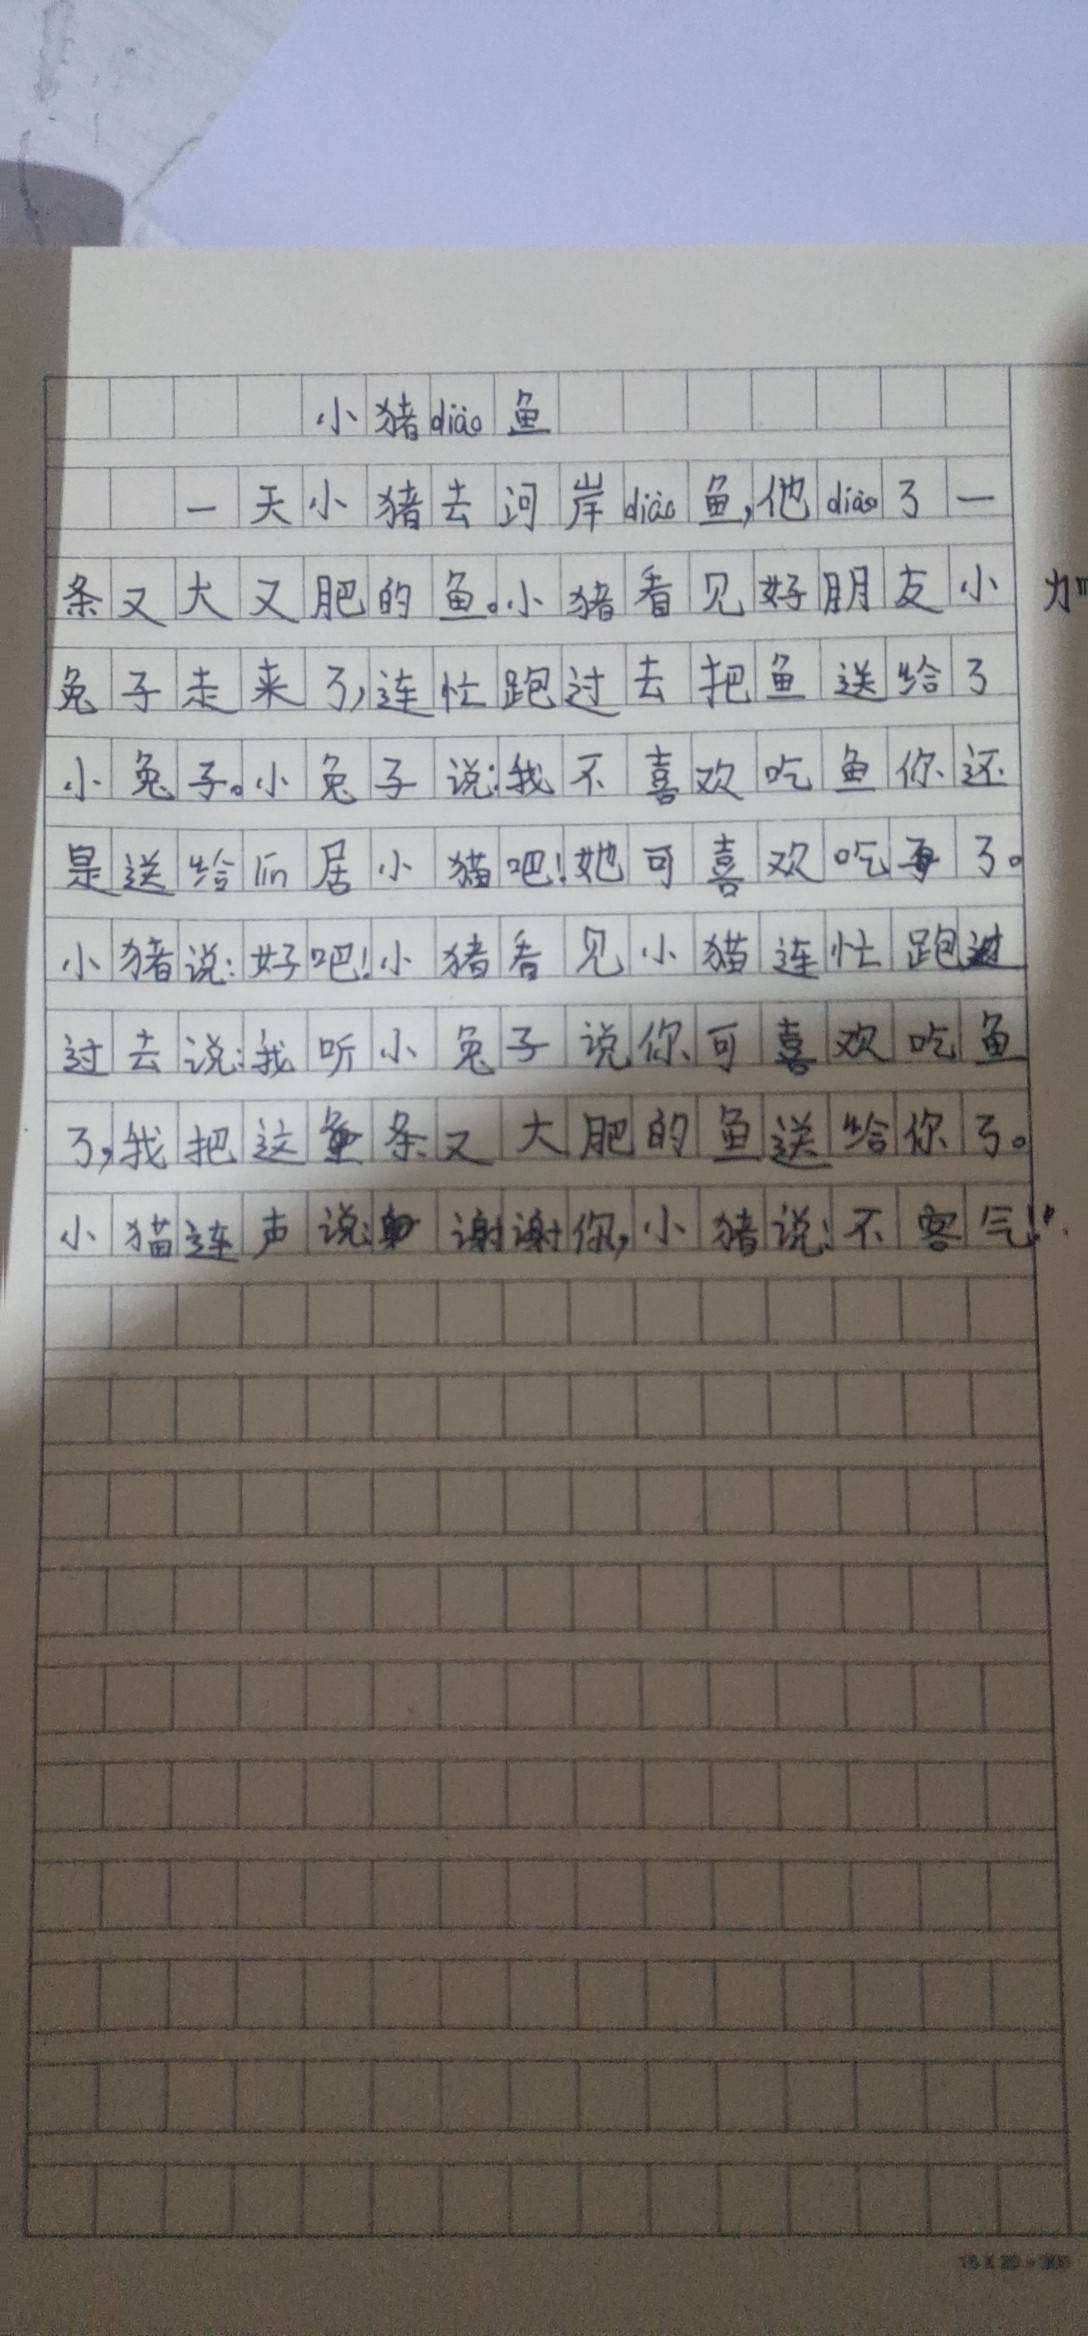 小猪diào鱼
一天小猪去河岸diào鱼,他diào了一
条又大又肥的鱼。小猪看见好朋友小
兔子走来了,连忙跑过去把鱼送给了
小兔子。小兔子说:我不喜欢吃鱼你还
是送给lín居小猫吧!她可喜欢吃了。
小猪说:好吧!小猪看见小猫连忙跑
过去说:我听小兔子说你可喜欢吃鱼
了,我把这条又大肥的鱼送给你了。
小猫连声说:谢谢你,小猪说:不客气!